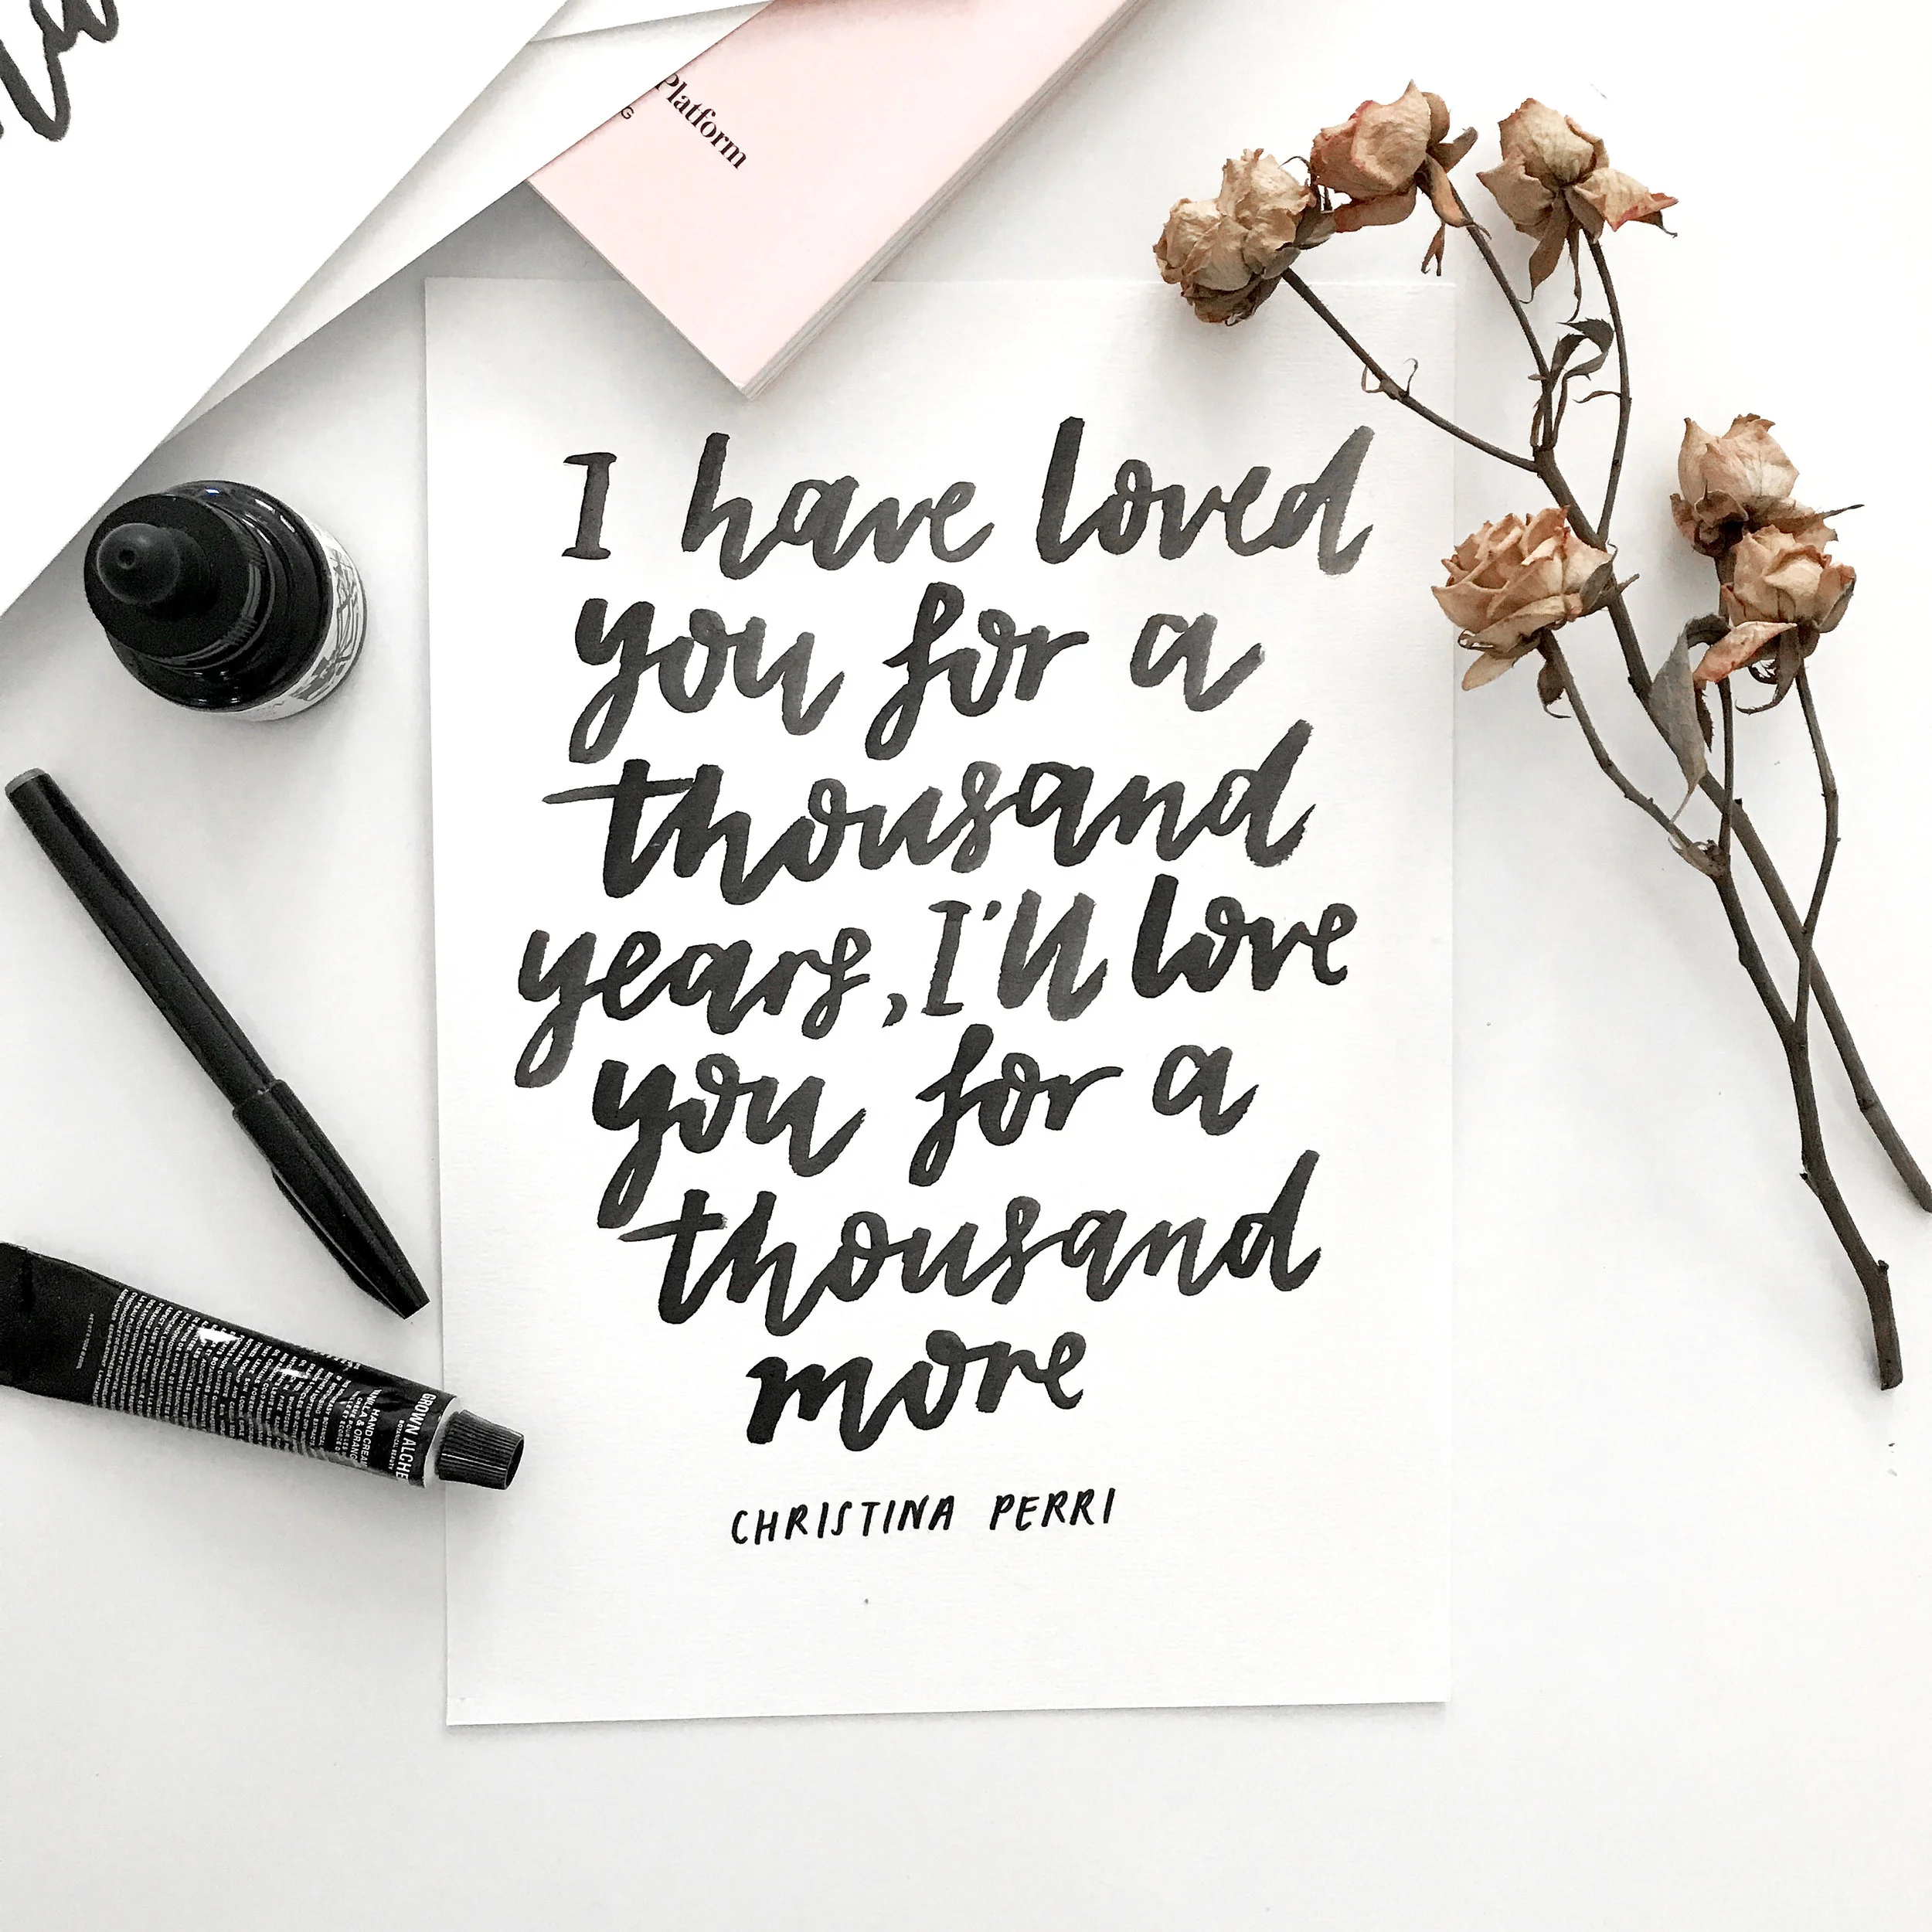 Platform
I have loved
you for a
thousand
years, I'll love
you for a
thousand
more
CHRISTINA PERRI
HAND CREAM